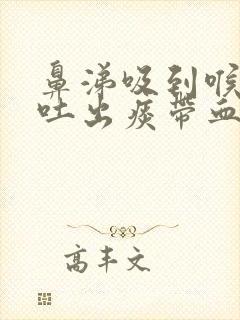 鼻涕吸到喉
吐出痰带血
高丰文